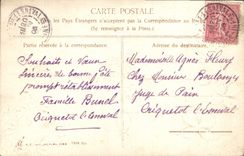 CARTE POSTALE
les Pays Étrangers n'acceptent pas la Correspondance au
(Se renseigner à la Poste)
Partie réservée à la correspondance
Adresse du destinataire
Souhaits et Vœux
sincères de bonne fête
prompt rétablissement
Famille Bunel
Criquetot l'Esneval
Mademoiselle Agnès Fleury
Chez Monsieur Boulanger
juge de Paix
Criquetot l'Esneval